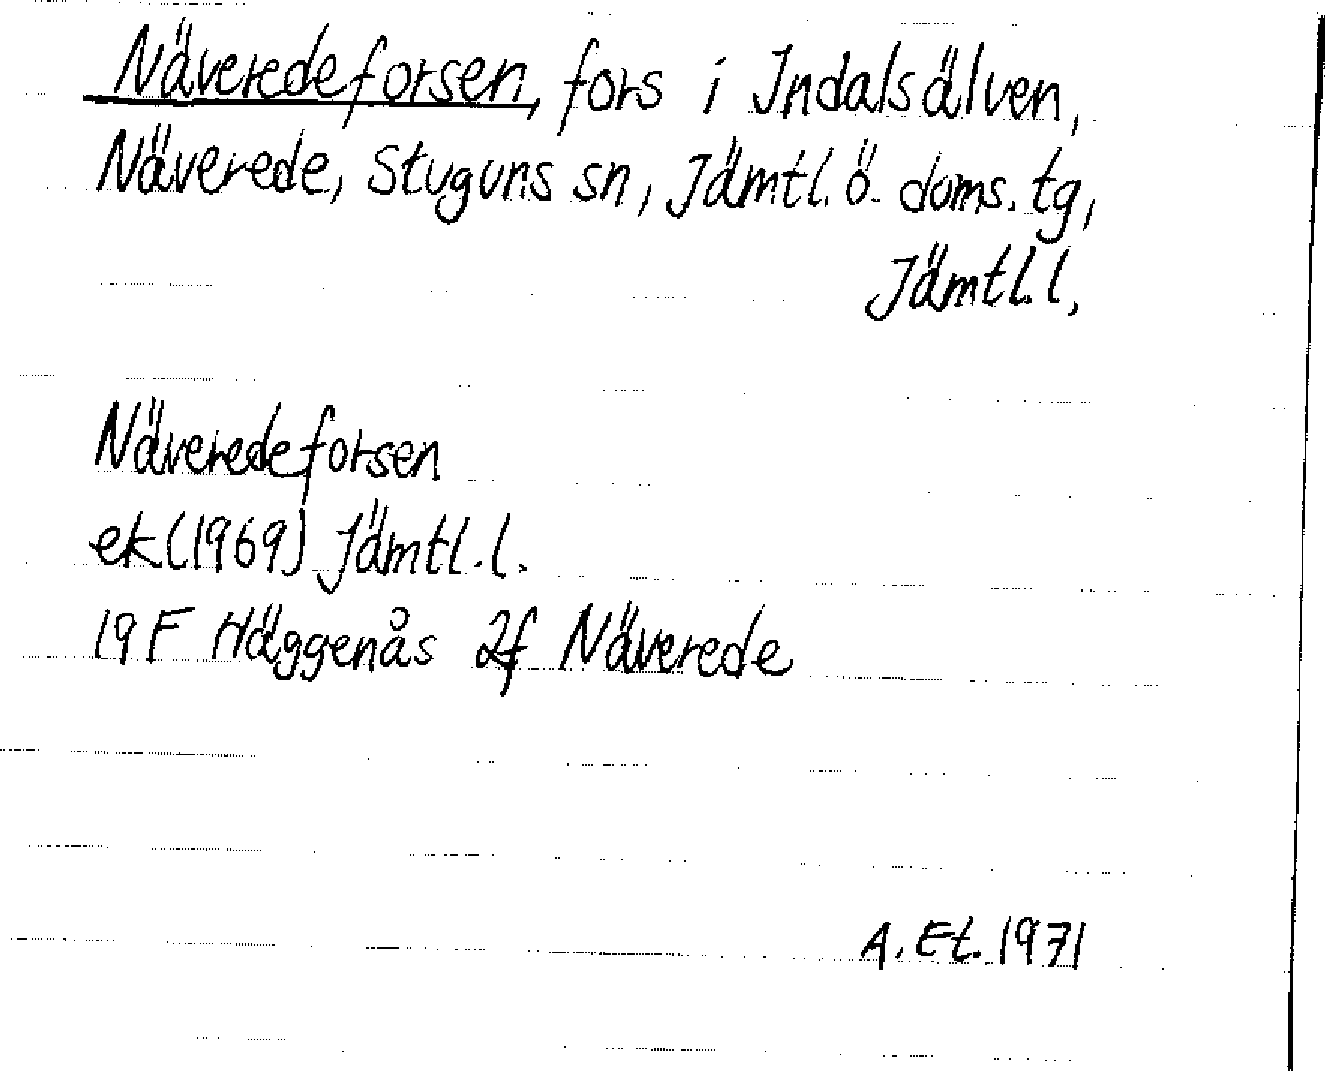 Näveredeforsen, fors i Indalsälven,
Näverede, Stuguns sn, Jämtl. ö. doms. tg,
Jämtl. l.
Näveredeforsen
ek (1969) Jämtl. l.
19 F Häggenås 2f Näverede
A. Et. 1971